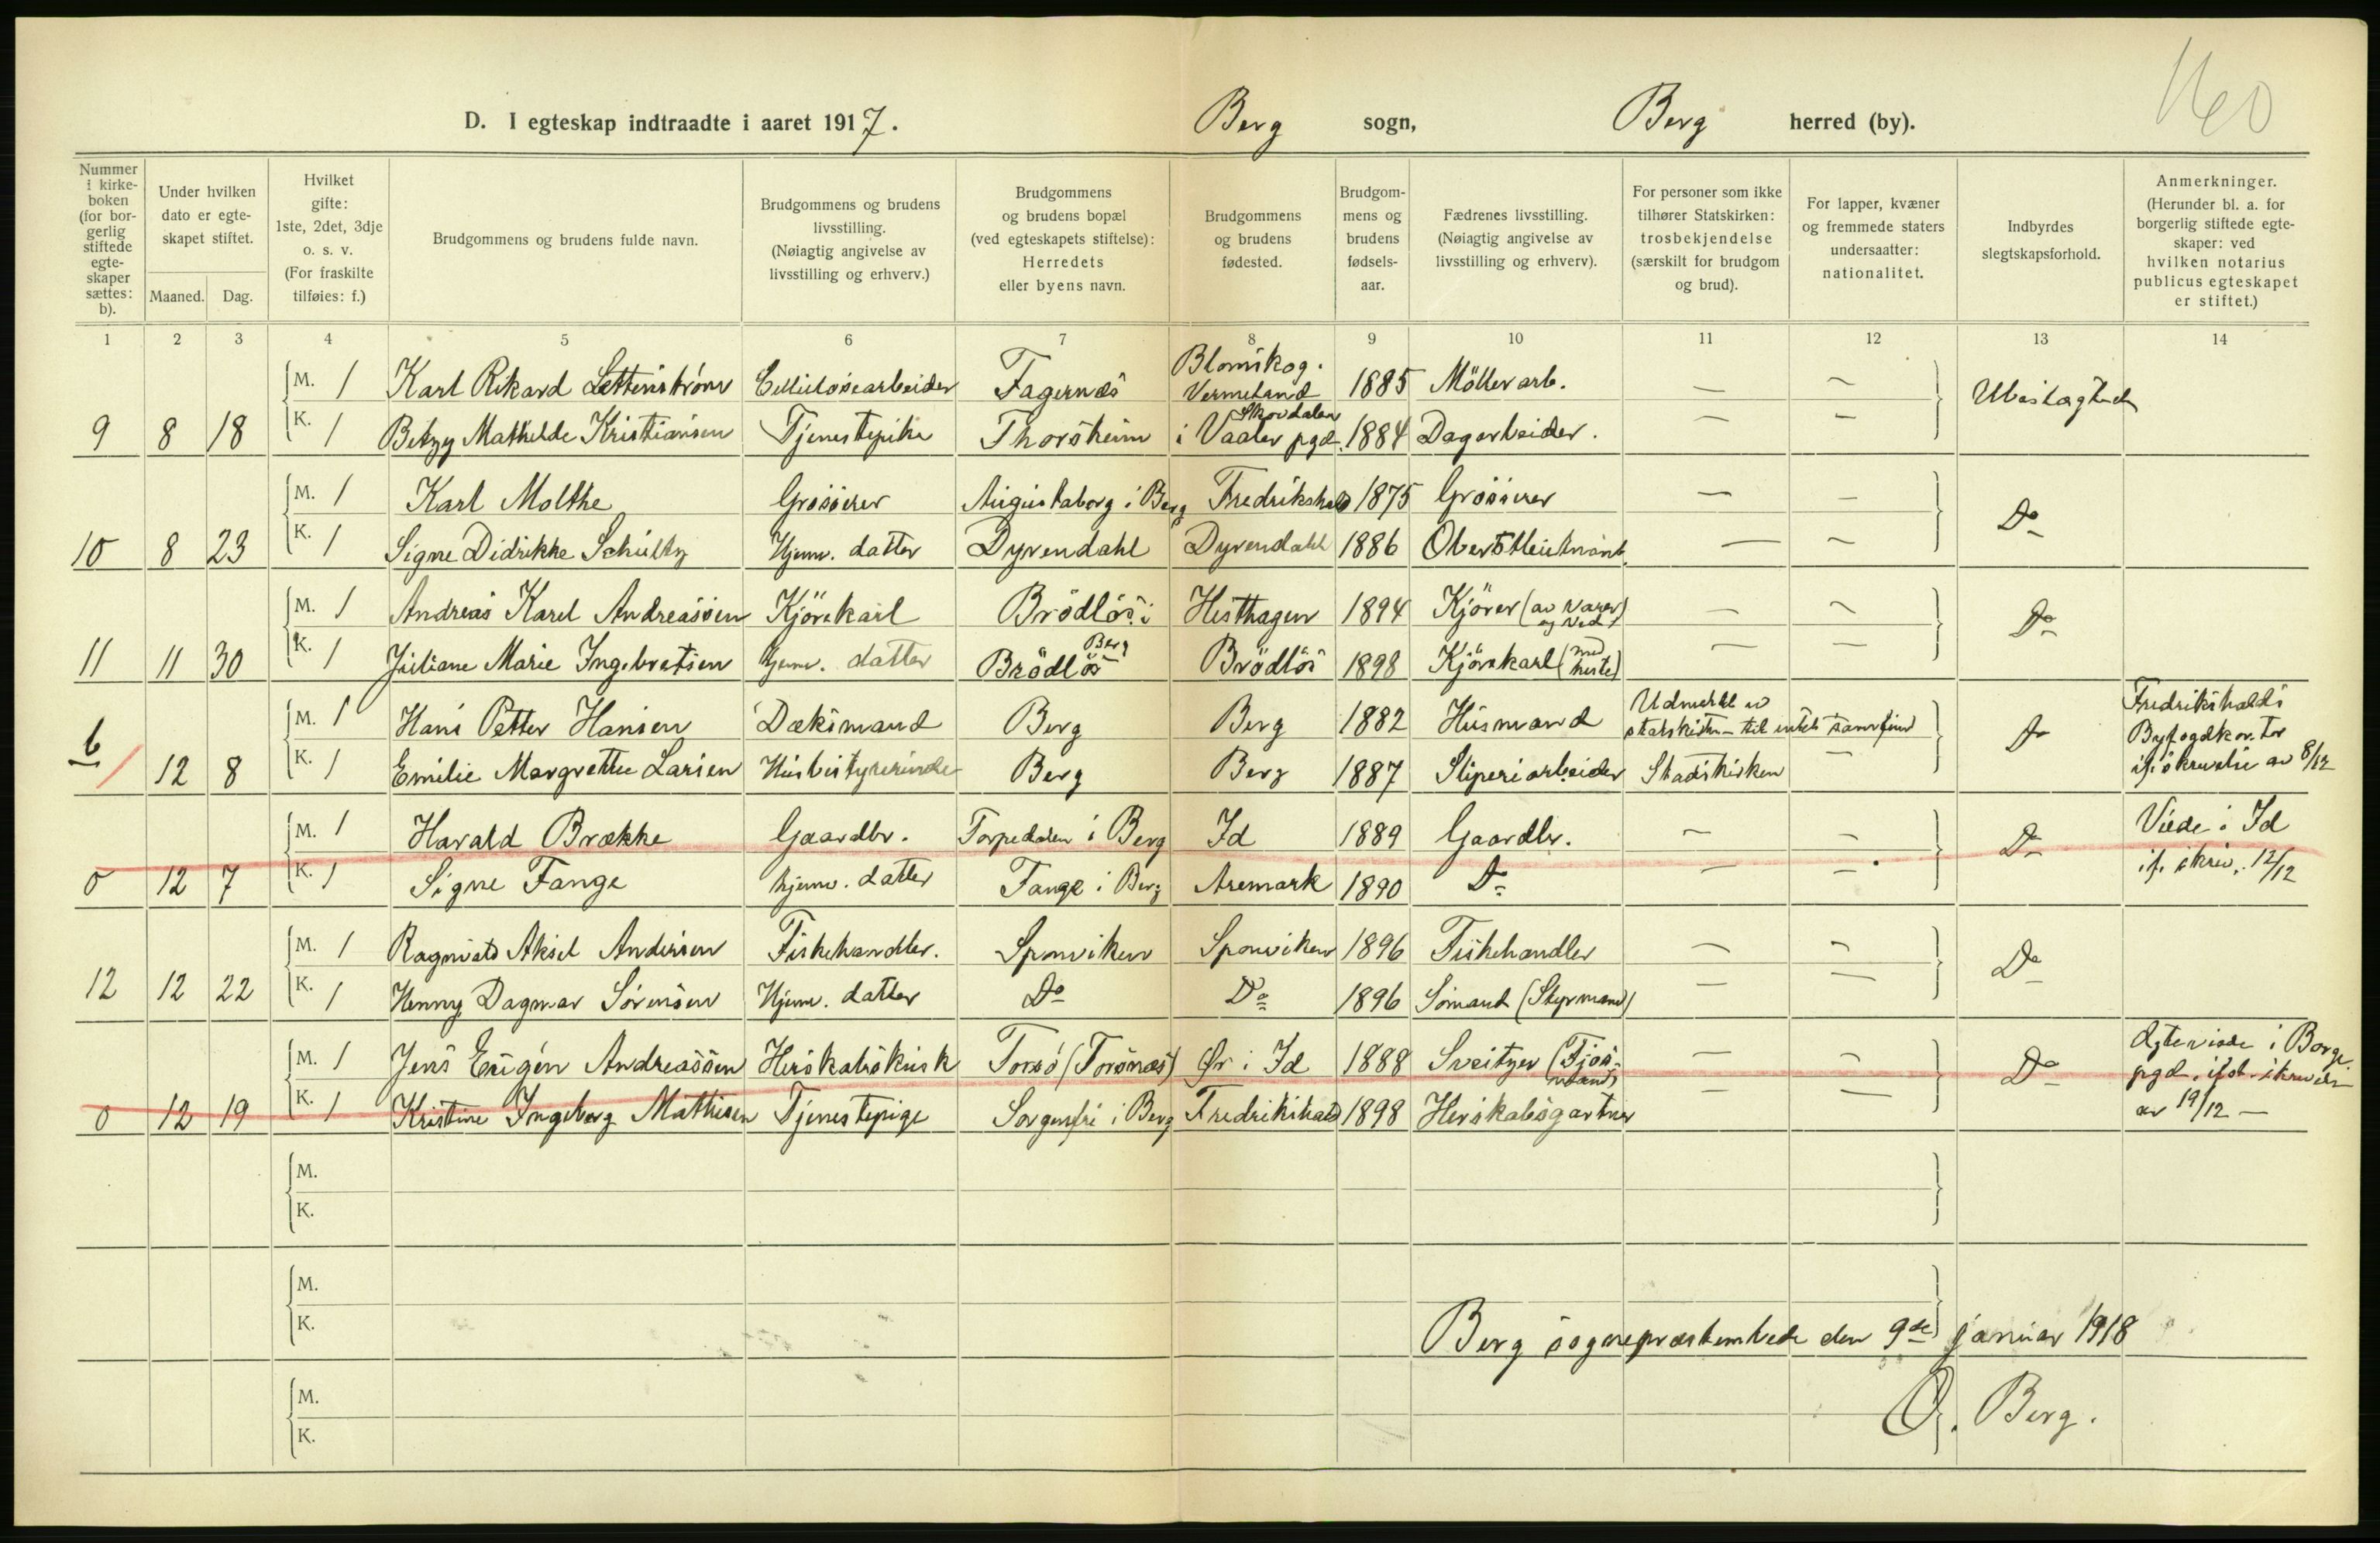 160
D. I egteskap indtraadte i aaret 1917. Berg sogn, Berg herred (by).
Nummer i kirke-boken (for bor-gerlig stiftede egte-skaper sættes: b).
Under hvilken dato er egte-skapet stiftet.
Maaned. Dag.
Hvilket gifte: 1ste, 2det, 3dje o. s. v. (For fraskilte tilføies: f.)
Brudgommens og brudens fulde navn.
Brudgommens og brudens livsstilling. (Nøiagtig angivelse av livsstilling og erhverv.)
Brudgommens og brudens bopæl (ved egteskapets stiftelse): Herredets eller byens navn.
Brudgommens og brudens fødested.
Brudgom-mens og brudens fødsels-aar.
Fædrenes livsstilling. (Nøiagtig angivelse av livsstilling og erhverv).
For personer som ikke tilhører Statskirken: trosbekjendelse (særskilt for brudgom og brud).
For lapper, kvæner og fremmede staters undersaatter: nationalitet.
Indbyrdes slegtskapsforhold.
Anmerkninger. (Herunder bl. a. for borgerlig stiftede egte-skaper: ved hvilken notarius publicus egteskapet er stiftet.)
1 2 3 4 5 6 7 8 9 10 11 12 13 14
M. 1 Karl Rikard Lettenström Cellulosearbeider Fagernäs Blomskog. Vermeland 1885 Möllerarb. — — Ubeslægtede
9 8 18 K. 1 Betzy Mathilde Kristiansen Tjenestepike Thorsheim Skovdalen i Vaaler pgd. 1884 Dagarbeider. — —
M. 1 Karl Molthe Grosserer Augustaborg i Berg Fredrikshald 1875 Grosserer — — Do
10 8 23 K. 1 Signe Didrikke Schultz Hjemv. datter Dyrendahl Dyrendahl 1886 Oberstleutnant. — —
M. 1 Andreas Karel Andreassen Kjörekarl Brödlös i Berg Hesthagen 1894 Kjörer (av varer og ved) — — Do
11 11 30 K. 1 Juliane Marie Ingebretsen Hjemv. datter Brödlös Brödlös 1898 Kjörekarl (med heste) — —
b M. 1 Hans Petter Hansen Dæksmand Berg Berg 1882 Husmand Udmeldt av statskirken - til intet samfund Do Fredrikshalds Byfogdkontor
12 8 K. 1 Emilie Margrethe Larsen Husbestyrerinde Berg Berg 1887 Sliperiarbeider Stadskirken — if. skrivelse av 8/12
M. 1 Harald Brække Gaardbr. Torpedalen i Berg Id 1889 Gaardbr. — — Do Viede i Id
0 12 7 K. 1 Signe Fange hjemv. datter Fange i Berg Aremark 1890 Do — — if. skriv. 12/12
M. 1 Ragnvald Aksel Andersen Fiskehandler. Sponviken Sponviken 1896 Fiskehandler — — Do
12 12 22 K. 1 Henny Dagmar Sörensen Hjemv. datter Do Do 1896 Sömand (Styrmand) — —
M. 1 Jens Eugén Andreassen Herskabskusk Torsö (Torsnæs) Ør i Id 1888 Sveitzer (Fjösmand) — — Do Ægteviede i Borge
0 12 19 K. 1 Kristine Ingeborg Mathisen Tjenestepige Sorgenfri i Berg Fredrikshald 1898 Herskabsgartner — — pgd. iföl. skrivelse av 19/12 —
M.
K.
M.
K.
Berg sogneprestembede den 9de januar 1918
M.
K.
O. Berg.